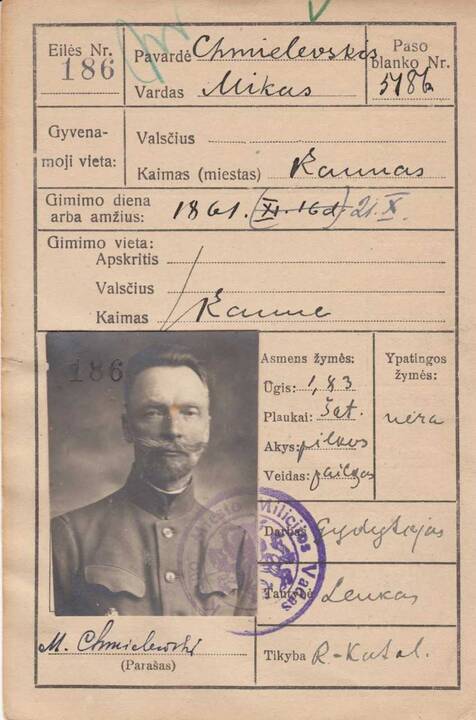 Eilės Nr.
186
Pavardė Chmielevskis
Vardas Mikas
Paso
blanko Nr.
5186
Gyvena-
moji vieta:
Valsčius
Kaimas (miestas) Kaunas
Gimimo diena
arba amžius: 1861. (XI. 16 d.) 21. X.
Gimimo vieta:
Apskritis
Valsčius
Kaimas Kaune
186
Asmens žymės:
Ūgis: 1,83
Plaukai: šat.
Akys: pilkos
Veidas: pailgas
Ypatingos
žymės:
nėra
Miesto Milicijos Vadas
Darbas Gydytojas
Tautybė Lenkas
Tikyba R-Katal.
M. Chmielewski
(Parašas)